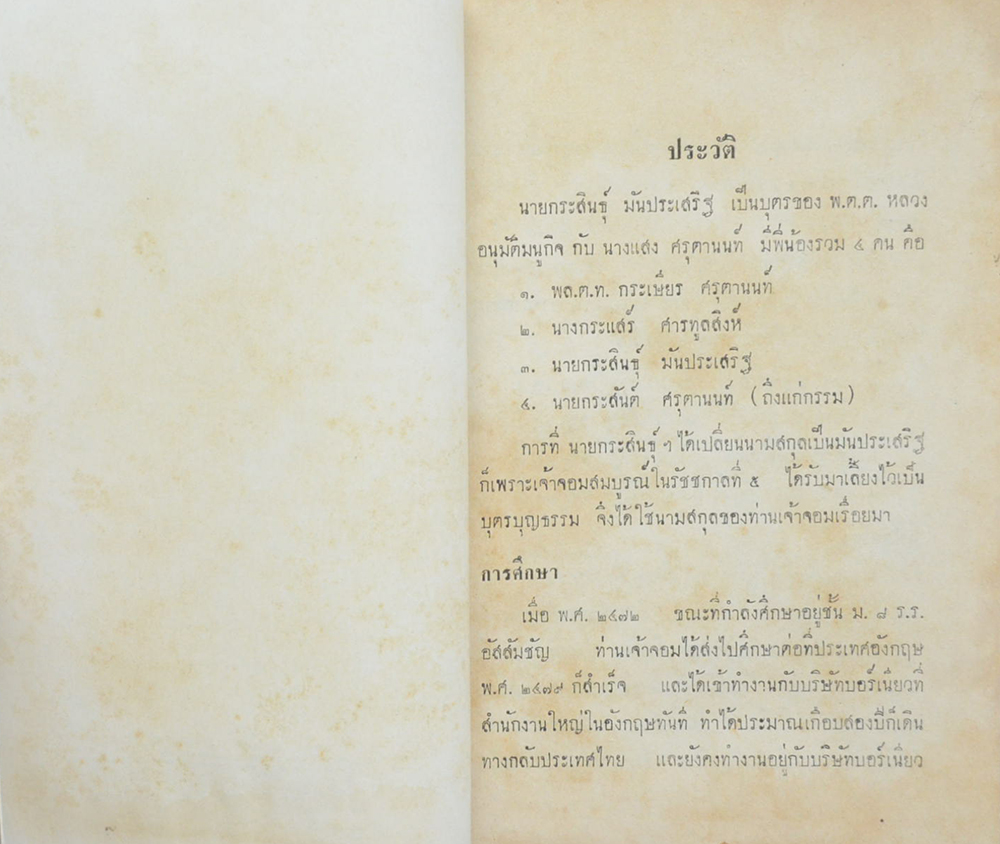 ประวัติ
นายกระสินธุ์ มันประเสริฐ เป็นบุตรของ พ.ต.ต. หลวง
อนุมัติมนูกิจ กับ นางแสง ศรุตานนท์ มีพี่น้องรวม ๔ คน คือ
๑. พล.ต.ท. กระเษียร ศรุตานนท์
๒. นางกระแสร์ ศารทูลสิงห์
๓. นายกระสินธุ์ มันประเสริฐ
๔. นายกระสันต์ ศรุตานนท์ (ถึงแก่กรรม)
การที่ นายกระสินธุ์ ฯ ได้เปลี่ยนนามสกุลเป็นมันประเสริฐ
ก็เพราะเจ้าจอมสมบูรณ์ในรัชชกาลที่ ๕ ได้รับมาเลี้ยงไว้เป็น
บุตรบุญธรรม จึงได้ใช้นามสกุลของท่านเจ้าจอมเรื่อยมา
การศึกษา
เมื่อ พ.ศ. ๒๔๗๒ ขณะที่กำลังศึกษาอยู่ชั้น ม. ๘ ร.ร.
อัสสัมชัญ ท่านเจ้าจอมได้ส่งไปศึกษาต่อที่ประเทศอังกฤษ
พ.ศ. ๒๔๗๙ ก็สำเร็จ และได้เข้าทำงานกับบริษัทบอร์เนียวที่
สำนักงานใหญ่ในอังกฤษทันที ทำได้ประมาณเกือบสองปีก็เดิน
ทางกลับประเทศไทย และยังคงทำงานอยู่กับบริษัทบอร์เนียว